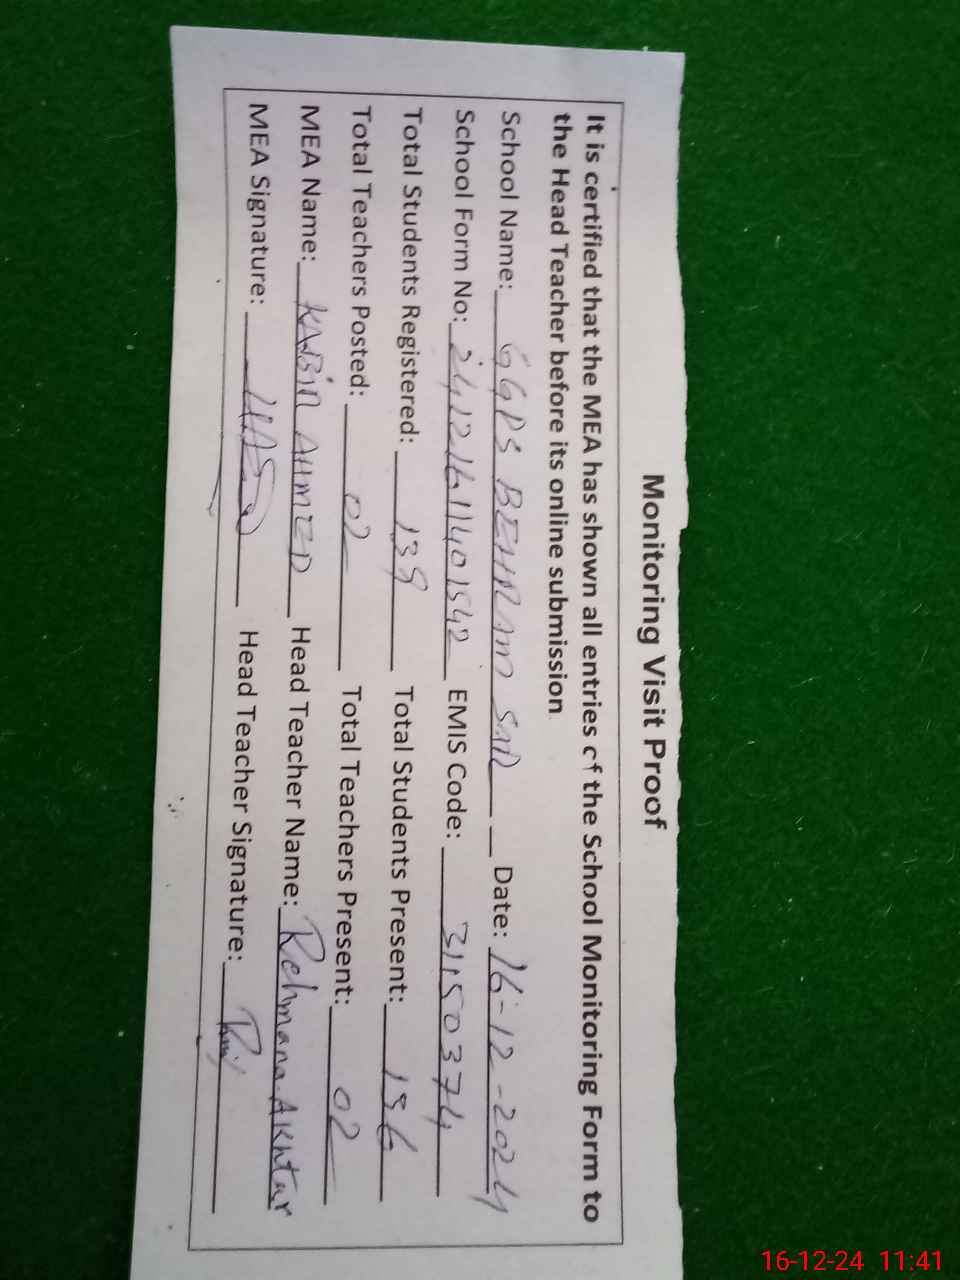 Monitoring Visit Proof
It is certified that the MEA has shown all entries of the School Monitoring Form to
the Head Teacher before its online submission
School Name: GGPS BEHRAM SAR Date: 16-12-2024
School Form No: 24121611401542 EMIS Code: 31150374
Total Students Registered: 139 Total Students Present: 136
Total Teachers Posted: 02 Total Teachers Present: 02
MEA Name: KABIR AHMED Head Teacher Name: Rehmana Akhtar
MEA Signature: Head Teacher Signature:
16-12-24 11:41